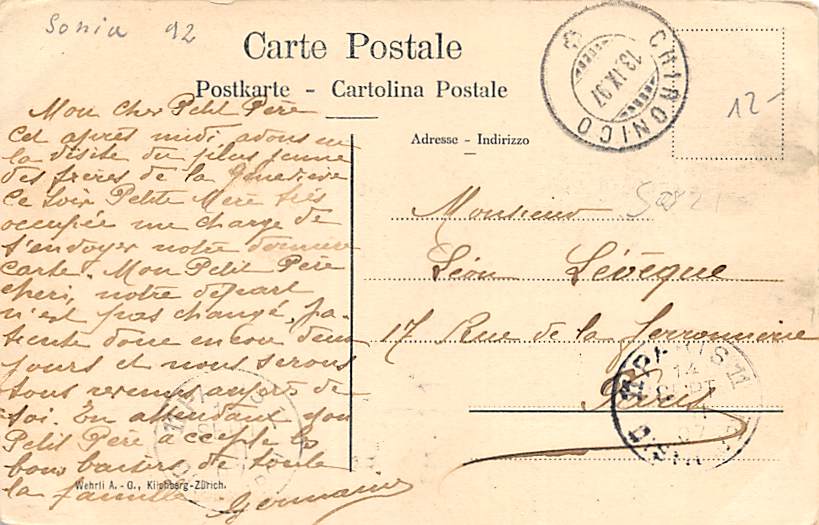 Sonia 92
Carte Postale
Postkarte - Cartolina Postale
CHIRONICO
13.IX.07
12-
Adresse - Indirizzo
Mon cher Petit Père
cet après midi avons eu
la visite du plus jeune
des frères de la
ce soir Petite Mère très
occupée me charge de
t'envoyer notre dernière
carte. Mon Petit Père
cheri, notre départ
n'est pas changé, pa-
tiente donc encore deux
jours et nous serons
tous revenus auprès de
toi. En attendant mon
Petit Père accepte les
bons baisers de toute
la famille
Germaine
Monsieur
Léon Lévêque
17 Rue de la Ferronnerie
Paris
PARIS 11
14
SEPT
07
DISTRIB
Wehrli A.-G., Kilchberg-Zürich.